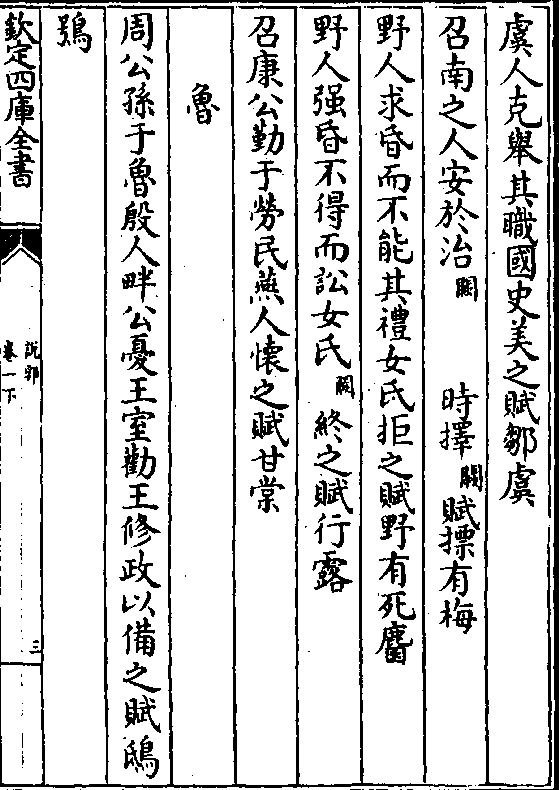 虞人克舉其職國史美之賦鄒虞
召南之人安於治闕 時擇闕賦摽有梅
野人求昏而不能其禮女氏拒之賦野有死麕
野人强昏不得而訟女氏闕終之賦行露
召康公勤于勞民燕人懷之賦甘棠
魯
周公孫于魯殷人畔公憂王室勸王修政以備之賦鴟
鴞
欽定四庫全書
說郛
卷一下
三